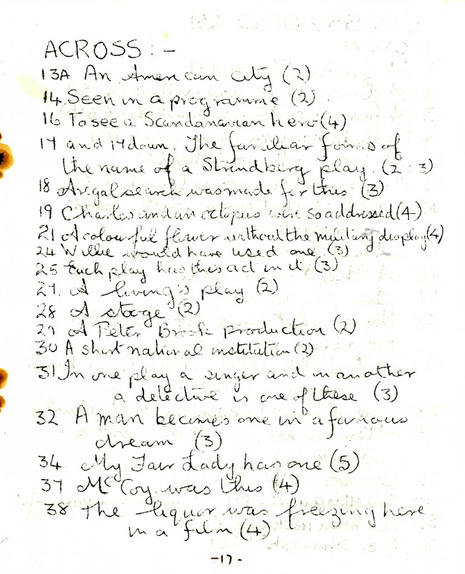 ACROSS :-
13A An American City (2)
14 Seen in a programme (2)
16 To see a Scandanavian hero (4)
17 and 17 down. The familiar forms of
the name of a Strindberg play. (2 . 3)
18 A regal search was made for this (3)
19 Charles and an octopus were so addressed (4)
21 A colourful flower without the military display (4)
24 Willie would have used one (3)
25 Each play has this act in it (3)
27. A living's play (2)
28 A stage (2)
29 A Peter Brook production (2)
30 A short national institution (2)
31 In one play a singer and in another
a detective is one of these (3)
32 A man becomes one in a famous
dream (3)
34 My Fair Lady has one (5)
37 McCoy was this (4)
38 The liquor was freezing here
in a film (4)
-17-